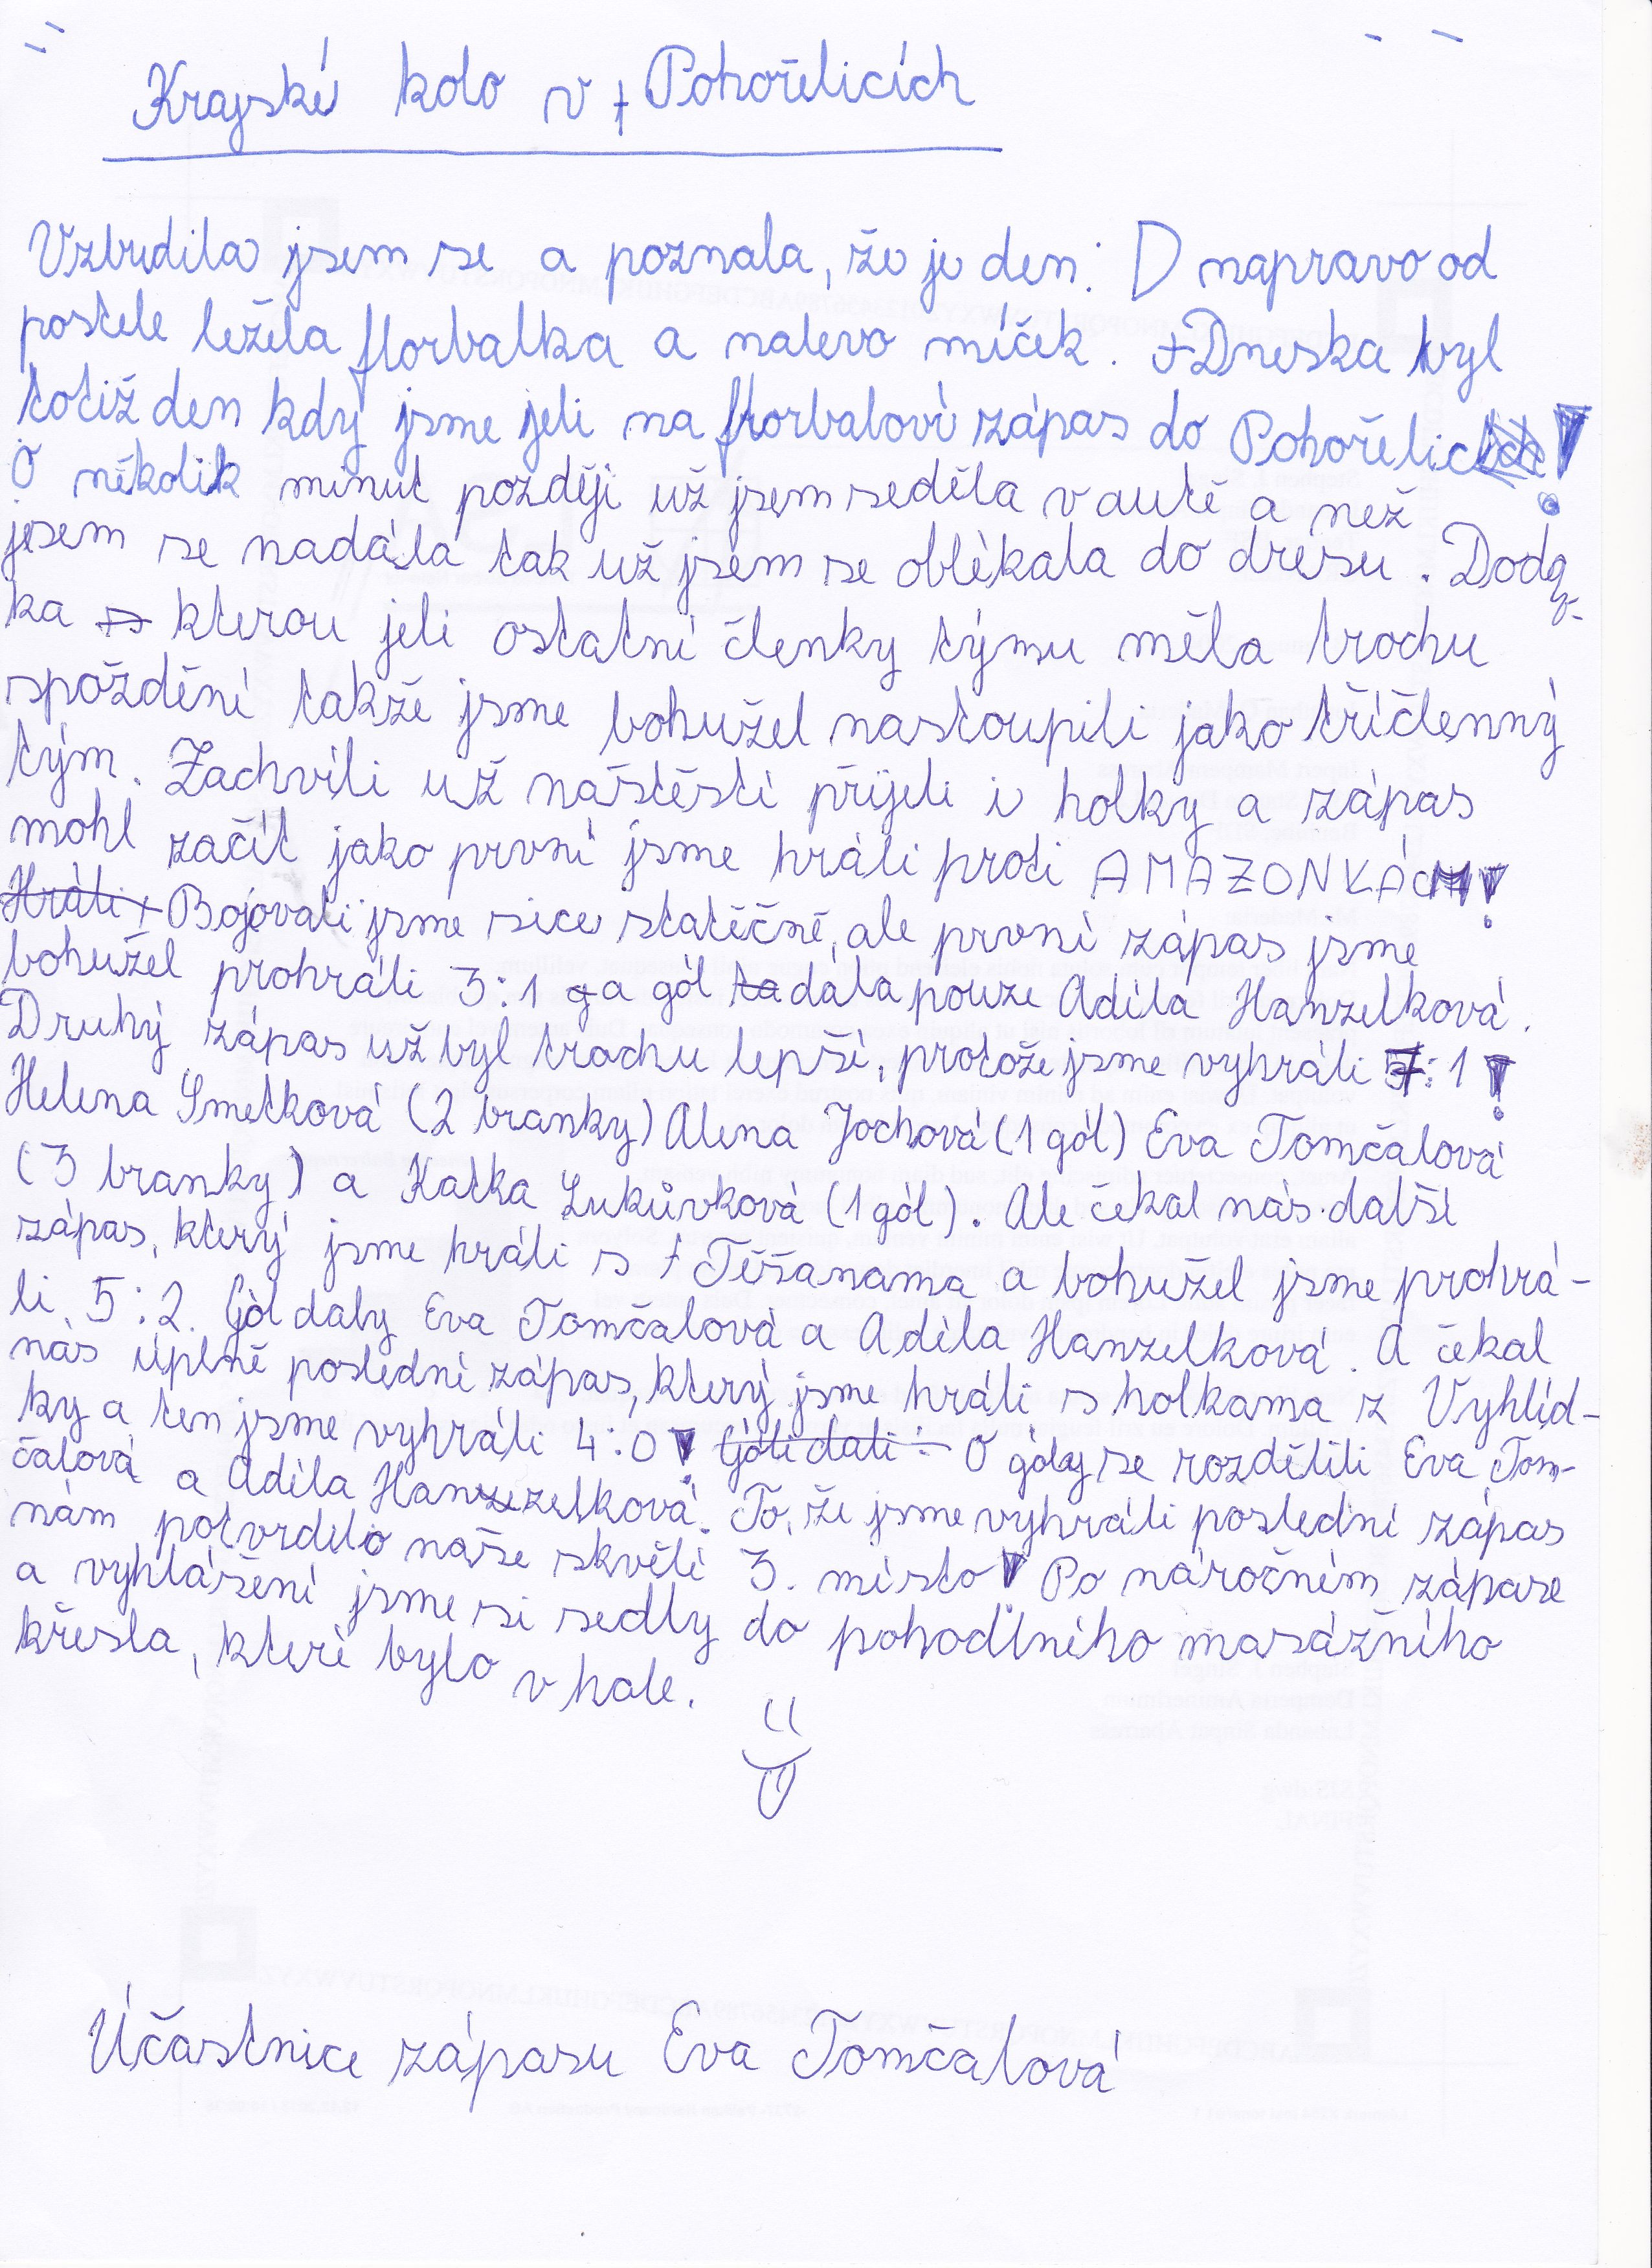 Krajské kolo v Pohořelicích
Vzbudila jsem se a poznala, že je den: D napravo od
postele ležela florbalka a nalevo míček. Dneska byl
totiž den kdy jsme jeli na florbalové zápas do Pohořelic!
O několik minut později už jsem seděla v autě a než
jsem se nadála tak už jsem se oblékala do dresu. Dodá-
ka kterou jeli ostatní členky týmu měla trochu
spoždění takže jsme bohužel nastoupili jako tříčlenný
tým. Zachvíli už naštěstí přijeli i holky a zápas
mohl začít jako první jsme hráli proti AMAZONKÁCH!
Hráli Bojovali jsme sice statěčně, ale první zápas jsme
bohužel prohráli 3:1 a gól dála pouze Adéla Hanzelková.
Druhý zápas už byl trochu lepší, protože jsme vyhráli 7:1!
Helena Smetková (2 branky) Alena Jochová (1 gól) Eva Tomčalová
(3 branky) a Katka Lukůvková (1 gól). Ale čekal nás další
zápas, který jsme hráli s Těšanama a bohužel jsme prohrá-
li 5:2. Gól daly Eva Tomčalová a Adéla Hanzelková. A čekal
nás úplně poslední zápas, který jsme hráli s holkama z Vyhlíd-
ky a ten jsme vyhráli 4:0! Góli dali O góly se rozdělili Eva Tom-
čalová a Adéla Hanzelková. To, že jsme vyhráli poslední zápas
nám potvrdilo naše skvělé 3. místo! Po náročném zápase
a vyhlášení jsme si sedly do pohodlného masážního
křesla, které bylo v hale.
Účastnice zápasu Eva Tomčalová